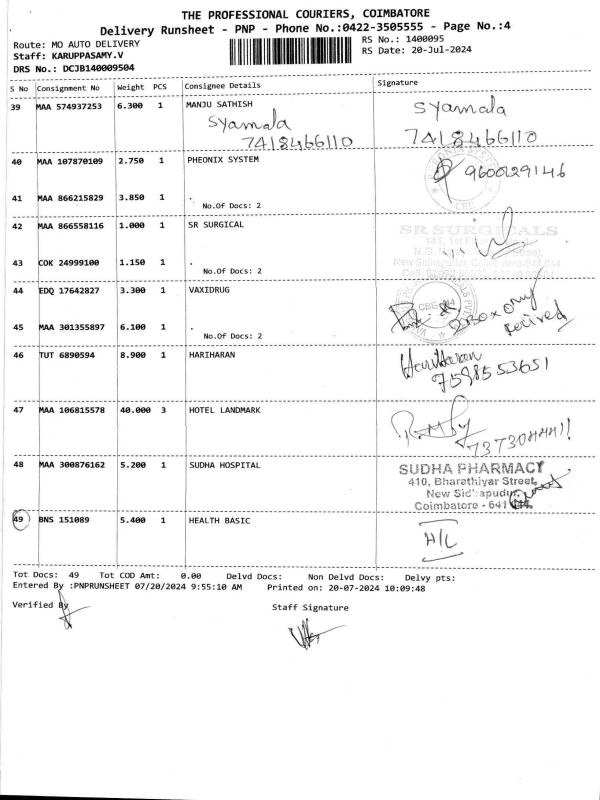 THE PROFESSIONAL COURIERS, COIMBATORE
Delivery Runsheet - PNP - Phone No.:0422-3505555 - Page No.:4
Route: MO AUTO DELIVERY
RS No.: 1400095
Staff: KARUPPASAMY.V
RS Date: 20-Jul-2024
DRS No.: DCJB140009504
S No Consignment No Weight PCS Consignee Details Signature
39 MAA 574937253 6.300 1 MANJU SATHISH
Syamala Syamala
7418466110 7418466110
40 MAA 107870109 2.750 1 PHEONIX SYSTEM
9600129146
41 MAA 866215829 3.850 1 .
No.Of Docs: 2
CBE
42 MAA 866558116 1.000 1 SR SURGICAL
SR SURGICALS
43 COK 24999100 1.150 1 .
No.Of Docs: 2
44 EDQ 17642827 3.300 1 VAXIDRUG
45 MAA 301355897 6.100 1 .
No.Of Docs: 2
46 TUT 6890594 8.900 1 HARIHARAN
Hariharan
7598553651
47 MAA 106815578 40.000 3 HOTEL LANDMARK
48 MAA 300876162 5.200 1 SUDHA HOSPITAL
SUDHA PHARMACY
410, Bharathiyar Street,
New Sidhapudur,
Coimbatore - 641
49 BNS 151089 5.400 1 HEALTH BASIC
H/L
Tot Docs: 49 Tot COD Amt: 0.00 Delvd Docs: Non Delvd Docs: Delvy pts:
Entered By :PNPRUNSHEET 07/20/2024 9:55:10 AM Printed on: 20-07-2024 10:09:48
Verified By Staff Signature